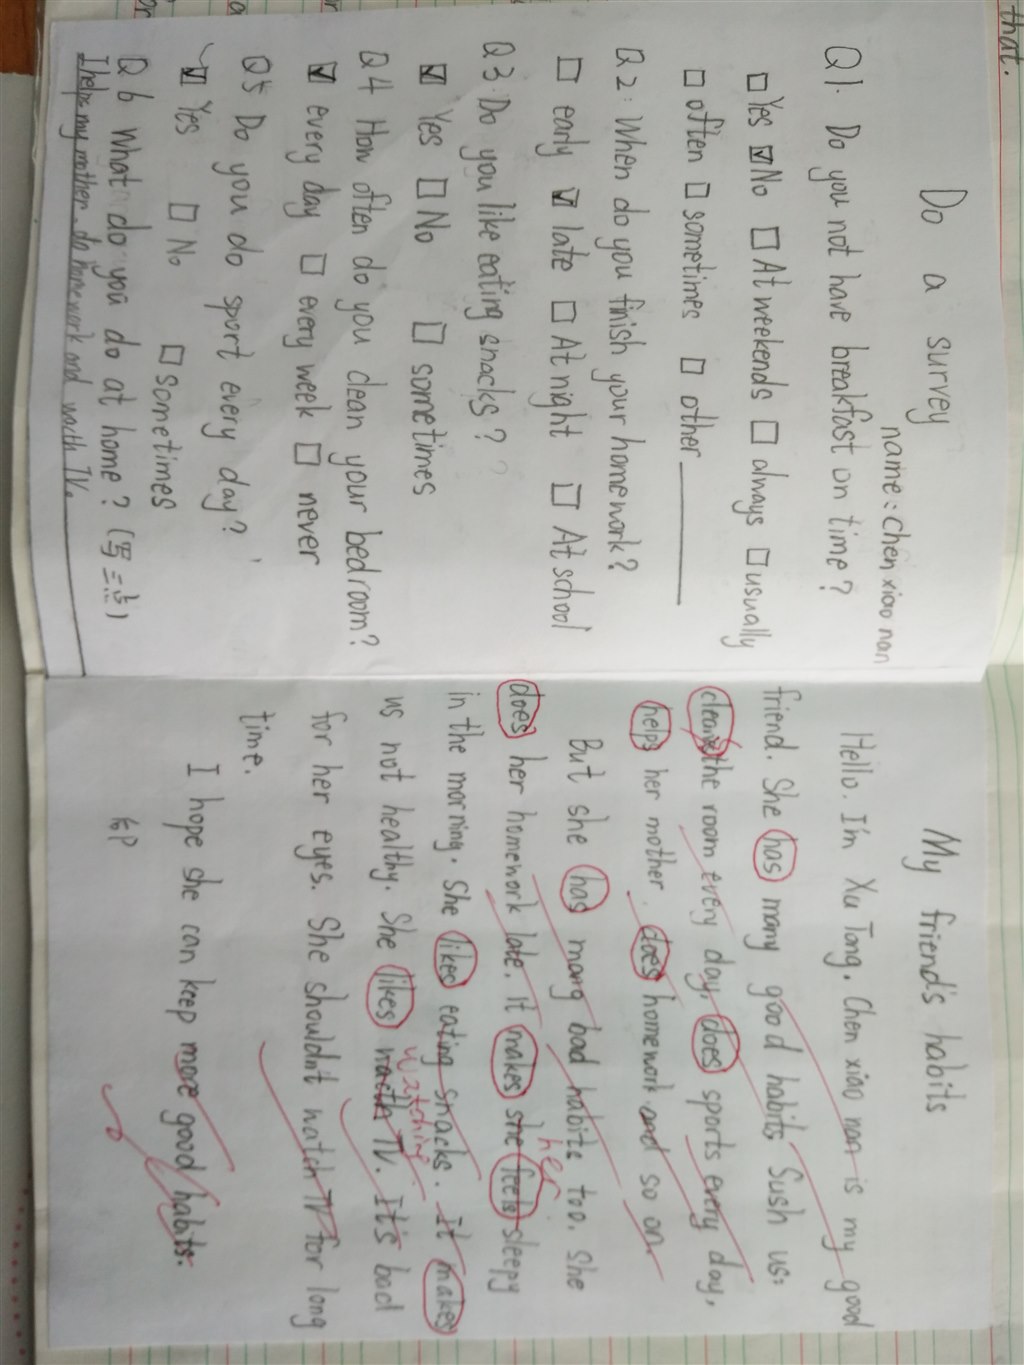 that.
Do a survey
name: chen xiao nan
Q1. Do you not have breakfast on time?
□Yes ☑No □At weekends □always □usually
□often □sometimes □other
Q2: When do you finish your homework?
□early ☑late □At night □At school
Q3: Do you like eating snacks?
☑Yes □No □sometimes
Q4 How often do you clean your bedroom?
☑every day □every week □never
Q5 Do you do sport every day?
☑Yes □No □sometimes
Q6 What do you do at home? (写三个)
I help my mother. do homework and wacth TV.
My friend's habits
Hello. I'm Xu Tong. Chen xiao nan is my good
friend. She has many good habits. Sush us:
cleans the room every day, does sports every day,
helps her mother. does homework and so on.
But she has mang bad habits too. She
does her homework late. It makes she feels sleepy
her
in the morning. She likes eating snacks. It makes
us not healthy. She likes wacth TV. It's bad
watching
for her eyes. She shouldn't watch TV for long
time.
I hope she can keep more good habits.